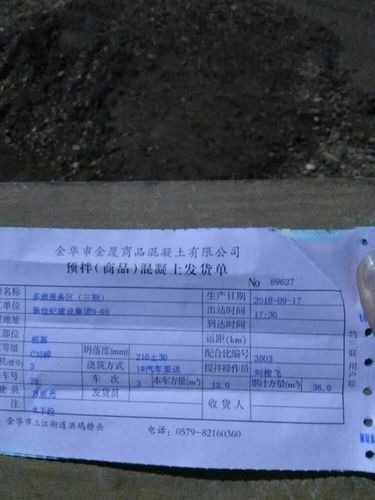 金华市金厦商品混凝土有限公司
预拌(商品)混凝土发货单
No 69627
名称 多湖商务区(三期) 生产日期 2016-09-17
单位 新世纪建设集团9-95 出站时间 17:30
地址 到达时间
部位 运距(km)
等级 坍落度(mm) 210±30 配合比编号 3503
浇筑方式 搅拌操作员
车号 车次 3 本车方量(m³) 12.0 累计方量(m³) 36.0
发货员 收货人
注 水下砼
金华市三江街道洪坞桥头 电话: 0579-82160360
第三联用户联